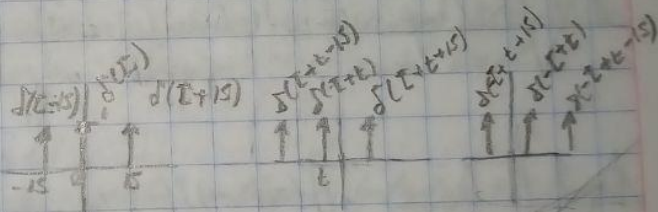 δ(τ-15) δ(τ) δ(τ+15)
-15 0 15
δ(τ+t-15) δ(-τ+t) δ(τ+t+15)
t
δ(-τ+t+15) δ(-τ+t) δ(-τ+t-15)